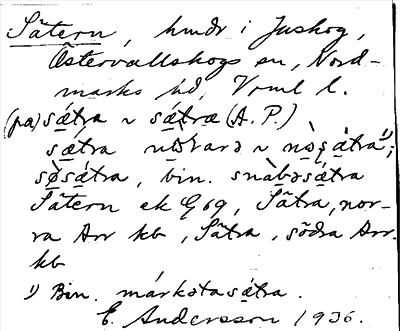 Sätern, hmdr i Juskog,
Östervallskogs sn, Nord-
marks hd, Vrml l.
(pa) sátra ~ sátræ (A. P.)
sætra ~ nò sátra ¹);
søsátra, bin. snàbəsátra
Sätern ek G 69, Sätra, nor-
ra Arr kb, Sätra, södra Arr.
kb
¹) Bin. márkətasátra.
E. Andersson 1936.